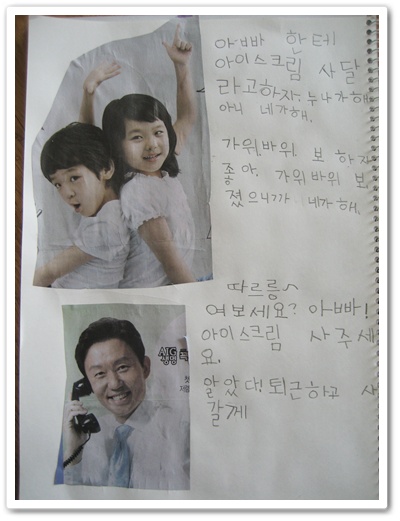 아빠 한테
아이스크림 사달
라고하자. 누나가해
아니 네가해.
가위.바위. 보 하자
좋아. 가위바위 보
졌으니까 네가해.
따르릉~
여보세요? 아빠!
아이스크림 사주세
요.
알았다! 퇴근하고 사
갈게
AIG
생명